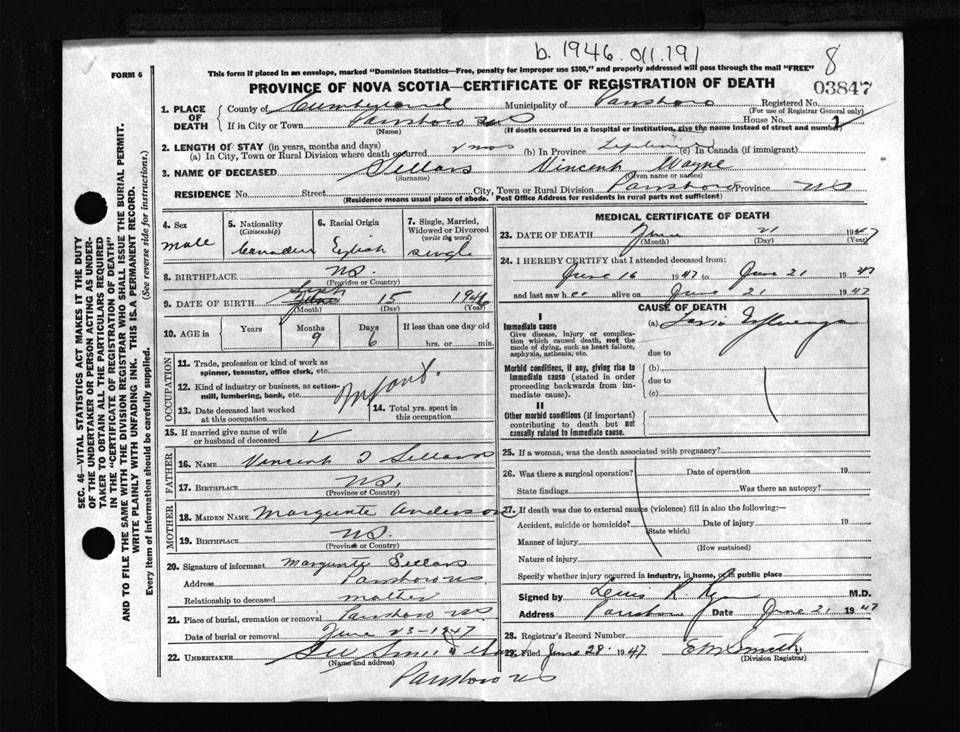 b. 1946. 011.191
8
FORM 6
This form if placed in an envelope, marked "Dominion Statistics—Free, penalty for improper use $300," and properly addressed will pass through the mail "FREE"
03847
PROVINCE OF NOVA SCOTIA—CERTIFICATE OF REGISTRATION OF DEATH
1. PLACE OF DEATH
County of Cumberland Municipality of Parrsboro Registered No.
(For use of Registrar General only)
If in City or Town Parrsboro NS House No. 1
(Name) (If death occurred in a hospital or institution, give the name instead of street and number)
2. LENGTH OF STAY (in years, months and days)
(a) In City, Town or Rural Division where death occurred mos (b) In Province (c) In Canada (if immigrant)
3. NAME OF DECEASED Sellars Vincent Wayne
(Surname) (Given name or names)
RESIDENCE No. Street City, Town or Rural Division Parrsboro Province NS
(Residence means usual place of abode. Post Office Address for residents in rural parts not sufficient)
4. Sex
male
5. Nationality (Citizenship)
Canadian
6. Racial Origin
English
7. Single, Married, Widowed or Divorced (write the word)
single
8. BIRTHPLACE NS.
(Province or Country)
9. DATE OF BIRTH Sept 15 1946
(Month) (Day) (Year)
10. AGE in Years Months Days If less than one day old
9 6 hrs. or min.
OCCUPATION
11. Trade, profession or kind of work as spinner, teamster, office clerk, etc.
12. Kind of industry or business, as cotton-mill, lumbering, bank, etc.
Infant.
13. Date deceased last worked at this occupation
14. Total yrs. spent in this occupation
15. If married give name of wife or husband of deceased
FATHER
16. NAME Vincent J Sellars
17. BIRTHPLACE NS.
(Province of Country)
MOTHER
18. MAIDEN NAME Marguerite Anderson
19. BIRTHPLACE NS.
(Province or Country)
20. Signature of informant Marguerite Sellars
Address Parrsboro NS
Relationship to deceased mother
21. Place of burial, cremation or removal Parrsboro NS
Date of burial or removal June 23-1947
22. UNDERTAKER
(Name and address)
Parrsboro NS
MEDICAL CERTIFICATE OF DEATH
23. DATE OF DEATH June 21 1947
(Month) (Day) (Year)
24. I HEREBY CERTIFY that I attended deceased from:
June 16 1947 to June 21 1947
and last saw h alive on June 21 1947
CAUSE OF DEATH
I
Immediate cause
Give disease, injury or complication which caused death, not the mode of dying, such as heart failure, asphyxia, asthenia, etc.
(a) Influenza
due to
Morbid conditions, if any, giving rise to immediate cause (stated in order proceeding backwards from immediate cause).
(b)
due to
(c)
II
Other morbid conditions (if important) contributing to death but not causally related to immediate cause.
25. If a woman, was the death associated with pregnancy?
26. Was there a surgical operation? Date of operation 19
State findings Was there an autopsy?
27. If death was due to external causes (violence) fill in also the following:—
Accident, suicide or homicide? Date of injury 19
(State which)
Manner of injury
(How sustained)
Nature of injury
Specify whether injury occurred in industry, in home, or in public place
Signed by M.D.
Address Parrsboro Date June 21 1947
28. Registrar's Record Number
29. Filed June 28 1947 E M Smith
(Division Registrar)
SEC. 46—VITAL STATISTICS ACT MAKES IT THE DUTY
OF THE UNDERTAKER OR PERSON ACTING AS UNDER-
TAKER TO OBTAIN ALL THE PARTICULARS REQUIRED
IN THE "CERTIFICATE OF REGISTRATION OF DEATH"
AND TO FILE THE SAME WITH THE DIVISION REGISTRAR WHO SHALL ISSUE THE BURIAL PERMIT.
WRITE PLAINLY WITH UNFADING INK. THIS IS A PERMANENT RECORD.
Every item of information should be carefully supplied. (See reverse side for instructions.)